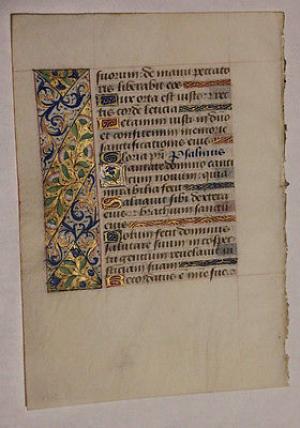 suorum: de manu peccato
ris liberabit eos
Lux orta est iusto: et rec
tis corde leticia
Letamini iusti in dño
et confitemini memorie
sanctificationis eius
Gloria pri Psalmus
Cantate domino canti
cum novum: quia
mirabilia fecit
Salvavit sibi dextera
eius: et brachium sanctū
eius
Notum fecit dominus
salutare suum: in conspec
tu gentium revelavit ius
ticiam suam
Recordatus e mie sue